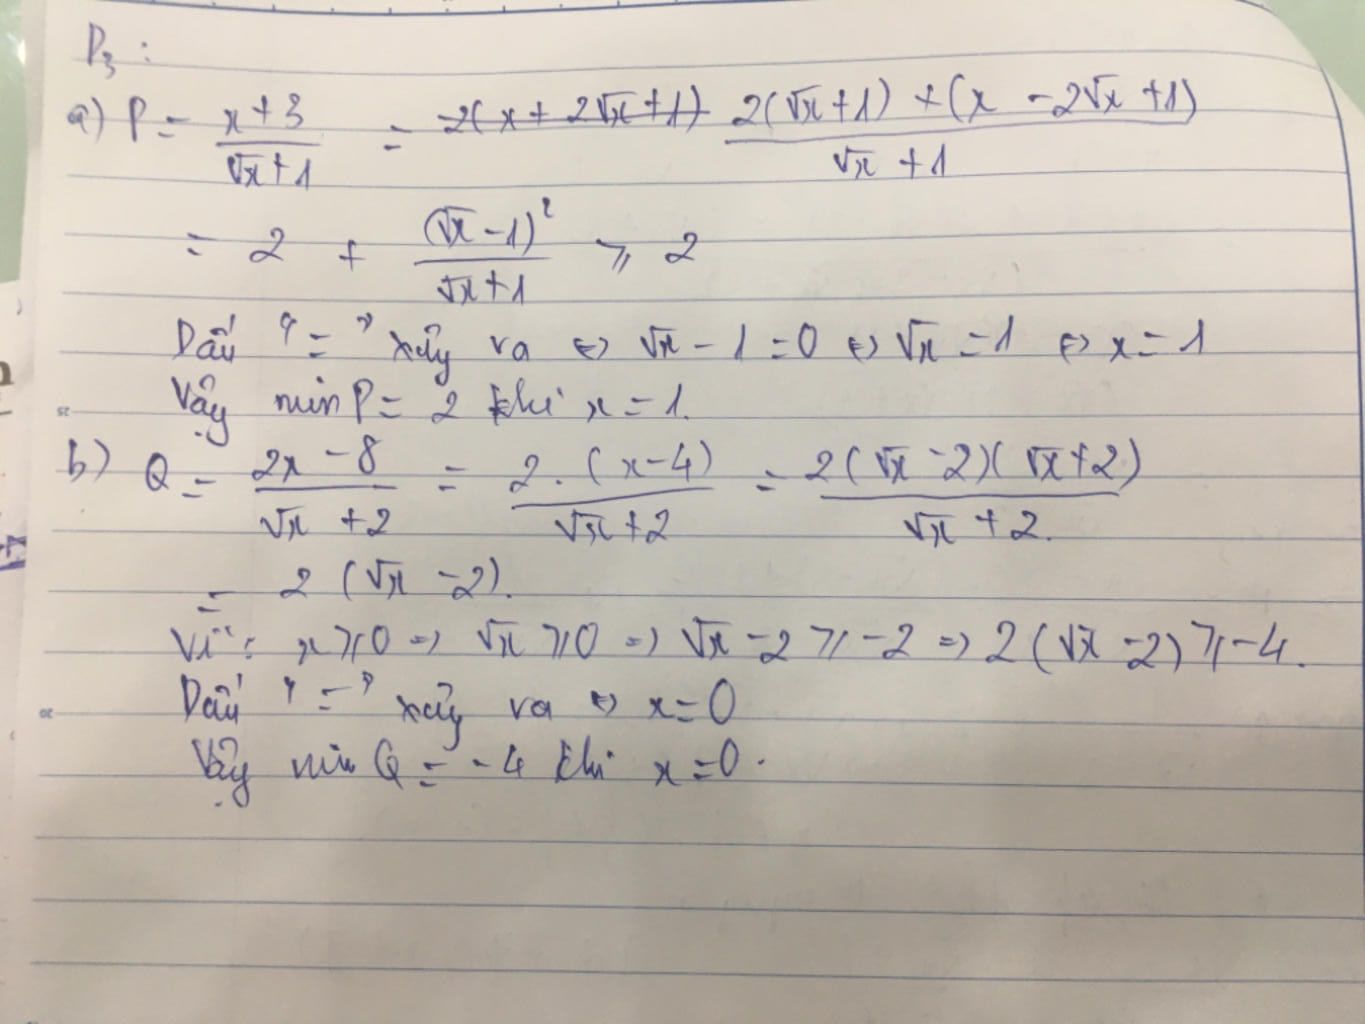 P3:
a) P = x+3 / √x+1 = -2(x + 2√x +1) 2(√x+1) + (x - 2√x +1) / √x + 1
= 2 + (√x - 1)² / √x+1 ⩾ 2
Dấu "=" xảy ra ⇔ √x - 1 = 0 ⇔ √x = 1 ⇔ x = 1
Vậy min P = 2 khi x = 1.
b) Q = 2x - 8 / √x + 2 = 2. (x-4) / √x+2 = 2(√x - 2)(√x+2) / √x + 2.
= 2 (√x - 2).
Vì: x ⩾ 0 => √x ⩾ 0 => √x - 2 ⩾ -2 => 2(√x - 2) ⩾ -4.
Dấu "=" xảy ra ⇔ x = 0
Vậy min Q = -4 khi x = 0.